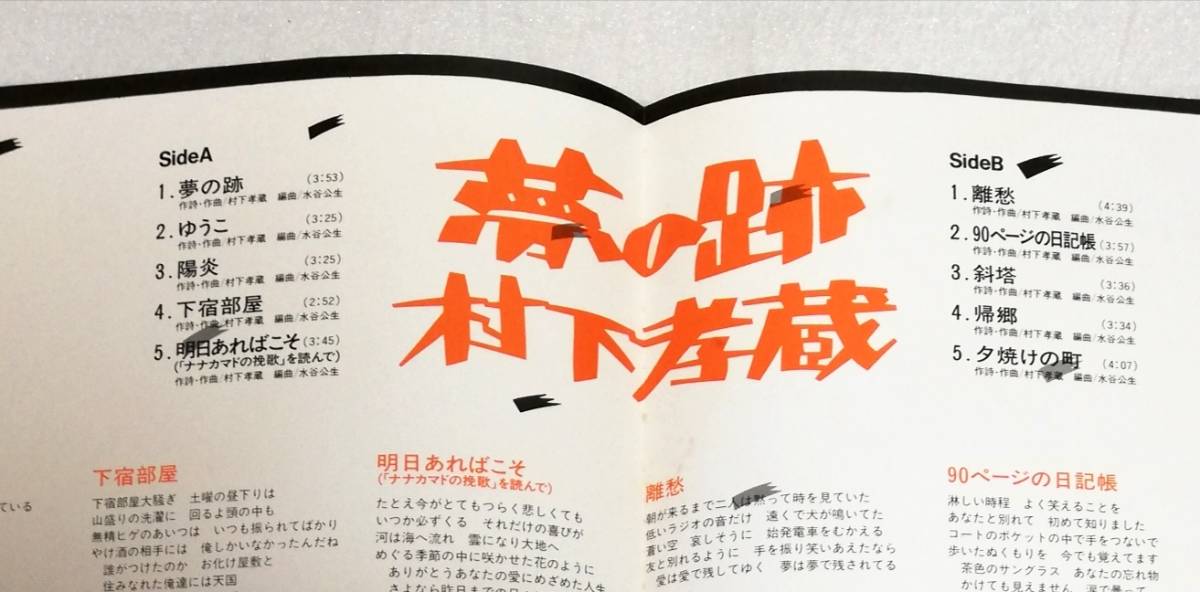 SideA
1.夢の跡 (3:53)
作詩・作曲/村下孝蔵 編曲/水谷公生
2.ゆうこ (3:25)
作詩・作曲/村下孝蔵 編曲/水谷公生
3.陽炎 (3:25)
作詩・作曲/村下孝蔵 編曲/水谷公生
4.下宿部屋 (2:52)
作詩・作曲/村下孝蔵 編曲/水谷公生
5.明日あればこそ (3:45)
(「ナナカマドの挽歌」を読んで)
作詩・作曲/村下孝蔵 編曲/水谷公生
夢の跡
村下孝蔵
SideB
1.離愁 (4:39)
作詩・作曲/村下孝蔵 編曲/水谷公生
2.90ページの日記帳 (3:57)
作詩・作曲/村下孝蔵 編曲/水谷公生
3.斜塔 (3:36)
作詩・作曲/村下孝蔵 編曲/水谷公生
4.帰郷 (3:34)
作詩・作曲/村下孝蔵 編曲/水谷公生
5.夕焼けの町 (4:07)
作詩・作曲/村下孝蔵 編曲/水谷公生
ている
下宿部屋
下宿部屋大騒ぎ 土曜の昼下りは
山盛りの洗濯に 回るよ頭の中も
無精ヒゲのあいつは いつも振られてばかり
やけ酒の相手には 俺しかいなかったんだね
誰がつけたのか お化け屋敷と
住みなれた俺達には天国
明日あればこそ
(「ナナカマドの挽歌」を読んで)
たとえ今がとてもつらく悲しくても
いつか必ずくる それだけの喜びが
河は海へ流れ 雲になり大地へ
めぐる季節の中に咲かせた花のように
ありがとうあなたの愛にめざめた人生
さよなら昨日までの
離愁
朝が来るまで二人は黙って時を見ていた
低いラジオの音だけ 遠くで犬が鳴いてた
蒼い空 哀しそうに 始発電車をむかえる
友と別れるように 手を振り笑いあえたなら
愛は愛で残してゆく 夢は夢で残されてる
90ページの日記帳
淋しい時程 よく笑えることを
あなたと別れて 初めて知りました
コートのポケットの中で手をつないで
歩いたぬくもりを 今でも覚えてます
茶色のサングラス あなたの忘れ物
かけても見えません 涙で曇って